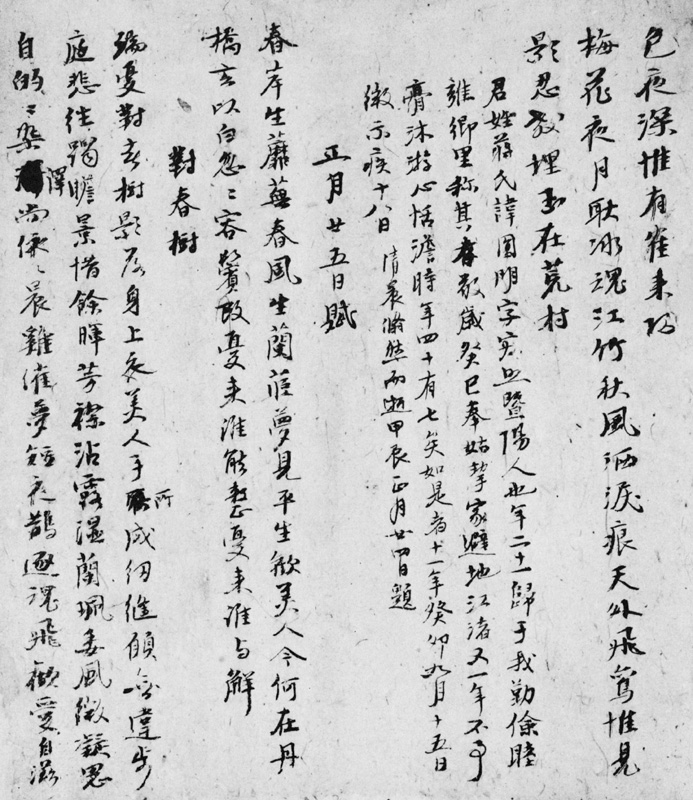 色夜深惟有隺来歸
梅花夜月耿冰魂江竹秋風洒淚痕天外飛鸞惟見
影忍教埋玉在荒村
君姓蔣氏諱圓明字寂照暨陽人也年二十一歸于我勤儉睦
雍鄉里稱其孝敬歲癸巳奉姑挈家避地江渚又一年不事
膏沐游心恬澹時年四十有七矣如是者十一年癸卯九月十五日
微示疾十八日清晨翛然而逝甲辰正月廿四日題
正月廿五日賦
春岸生蘼蕪春風生蘭茝夢見平生歡美人今何在丹
橘玄以白忽〻容鬢改憂来誰能整憂来誰与解
對春樹
端憂對玄樹影落身上衣美人手所成縫違步
庭悲往躅瞻景惜餘暉芳襟沾露濕蘭珮委風微凝思
自的〻染澤尚依〻晨雞催夢短夜鵲逐魂飛顧愛自滋